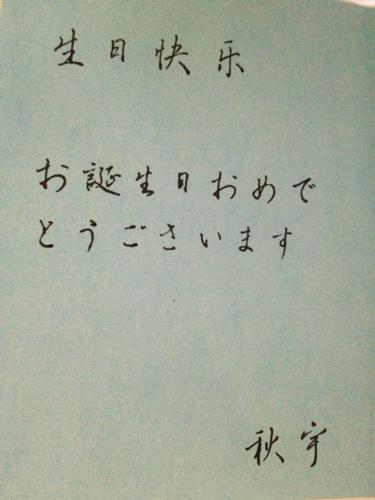 生日快乐
お誕生日おめで
とうございます
秋宇